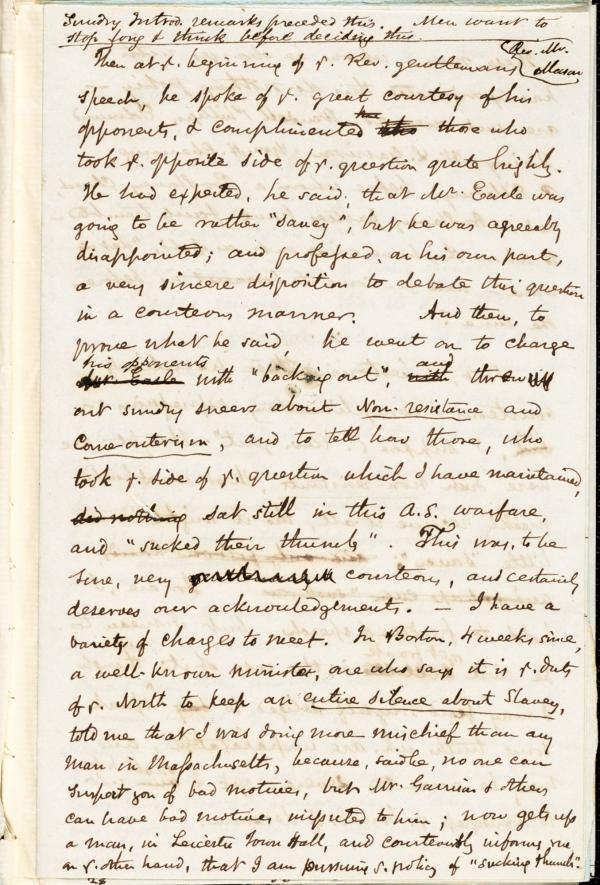 Sundry Introd. remarks preceded this. Men want to
stop long & think before deciding this.
Then at ye. beginning of ye. Rev. gentleman's {Rev. Mr. Mason
speech, he spoke of ye. great courtesy of his
opponents, & complimented those who
took ye. opposite side of ye. question quite highly.
He had expected, he said, that Mr. Earle was
going to be rather "saucy", but he was agreeably
disappointed; and professed, on his own part,
a very sincere disposition to debate this question
in a courteous manner. And then, to
prove what he said, he went on to charge
his opponents
Mr. Earle with "backing out", and threw
out sundry sneers about Non-resistance and
Come-outerism, and to tell how those, who
took ye. side of ye. question which I have maintained,
did nothing sat still in this A.S. warfare,
and "sucked their thumbs". This was, to be
sure, very courteous, and certainly
deserves our acknowledgements. — I have a
variety of charges to meet. In Boston, 4 weeks since,
a well-known minister, one who says it is ye. duty
of ye. North to keep an entire silence about Slavery,
told me that I was doing more mischief than any
man in Massachusetts, because, said he, no one can
suspect you of bad motives, but Mr. Garrison & others
can have bad motives imputed to him; now gets up
a man, in Leicester Town Hall, and courteously informs me
on ye. other hand, that I am pursuing ye. policy of "sucking thumbs".